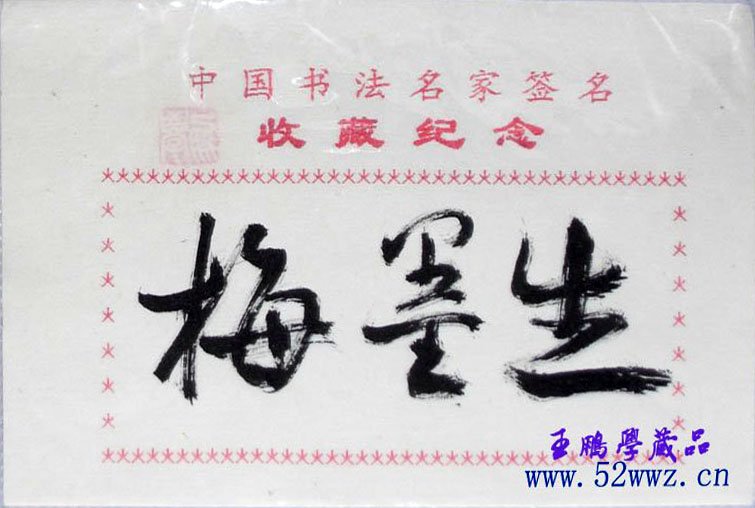 中国书法名家签名
收藏纪念
梅墨生
王鹏学藏品
www.52wwz.cn